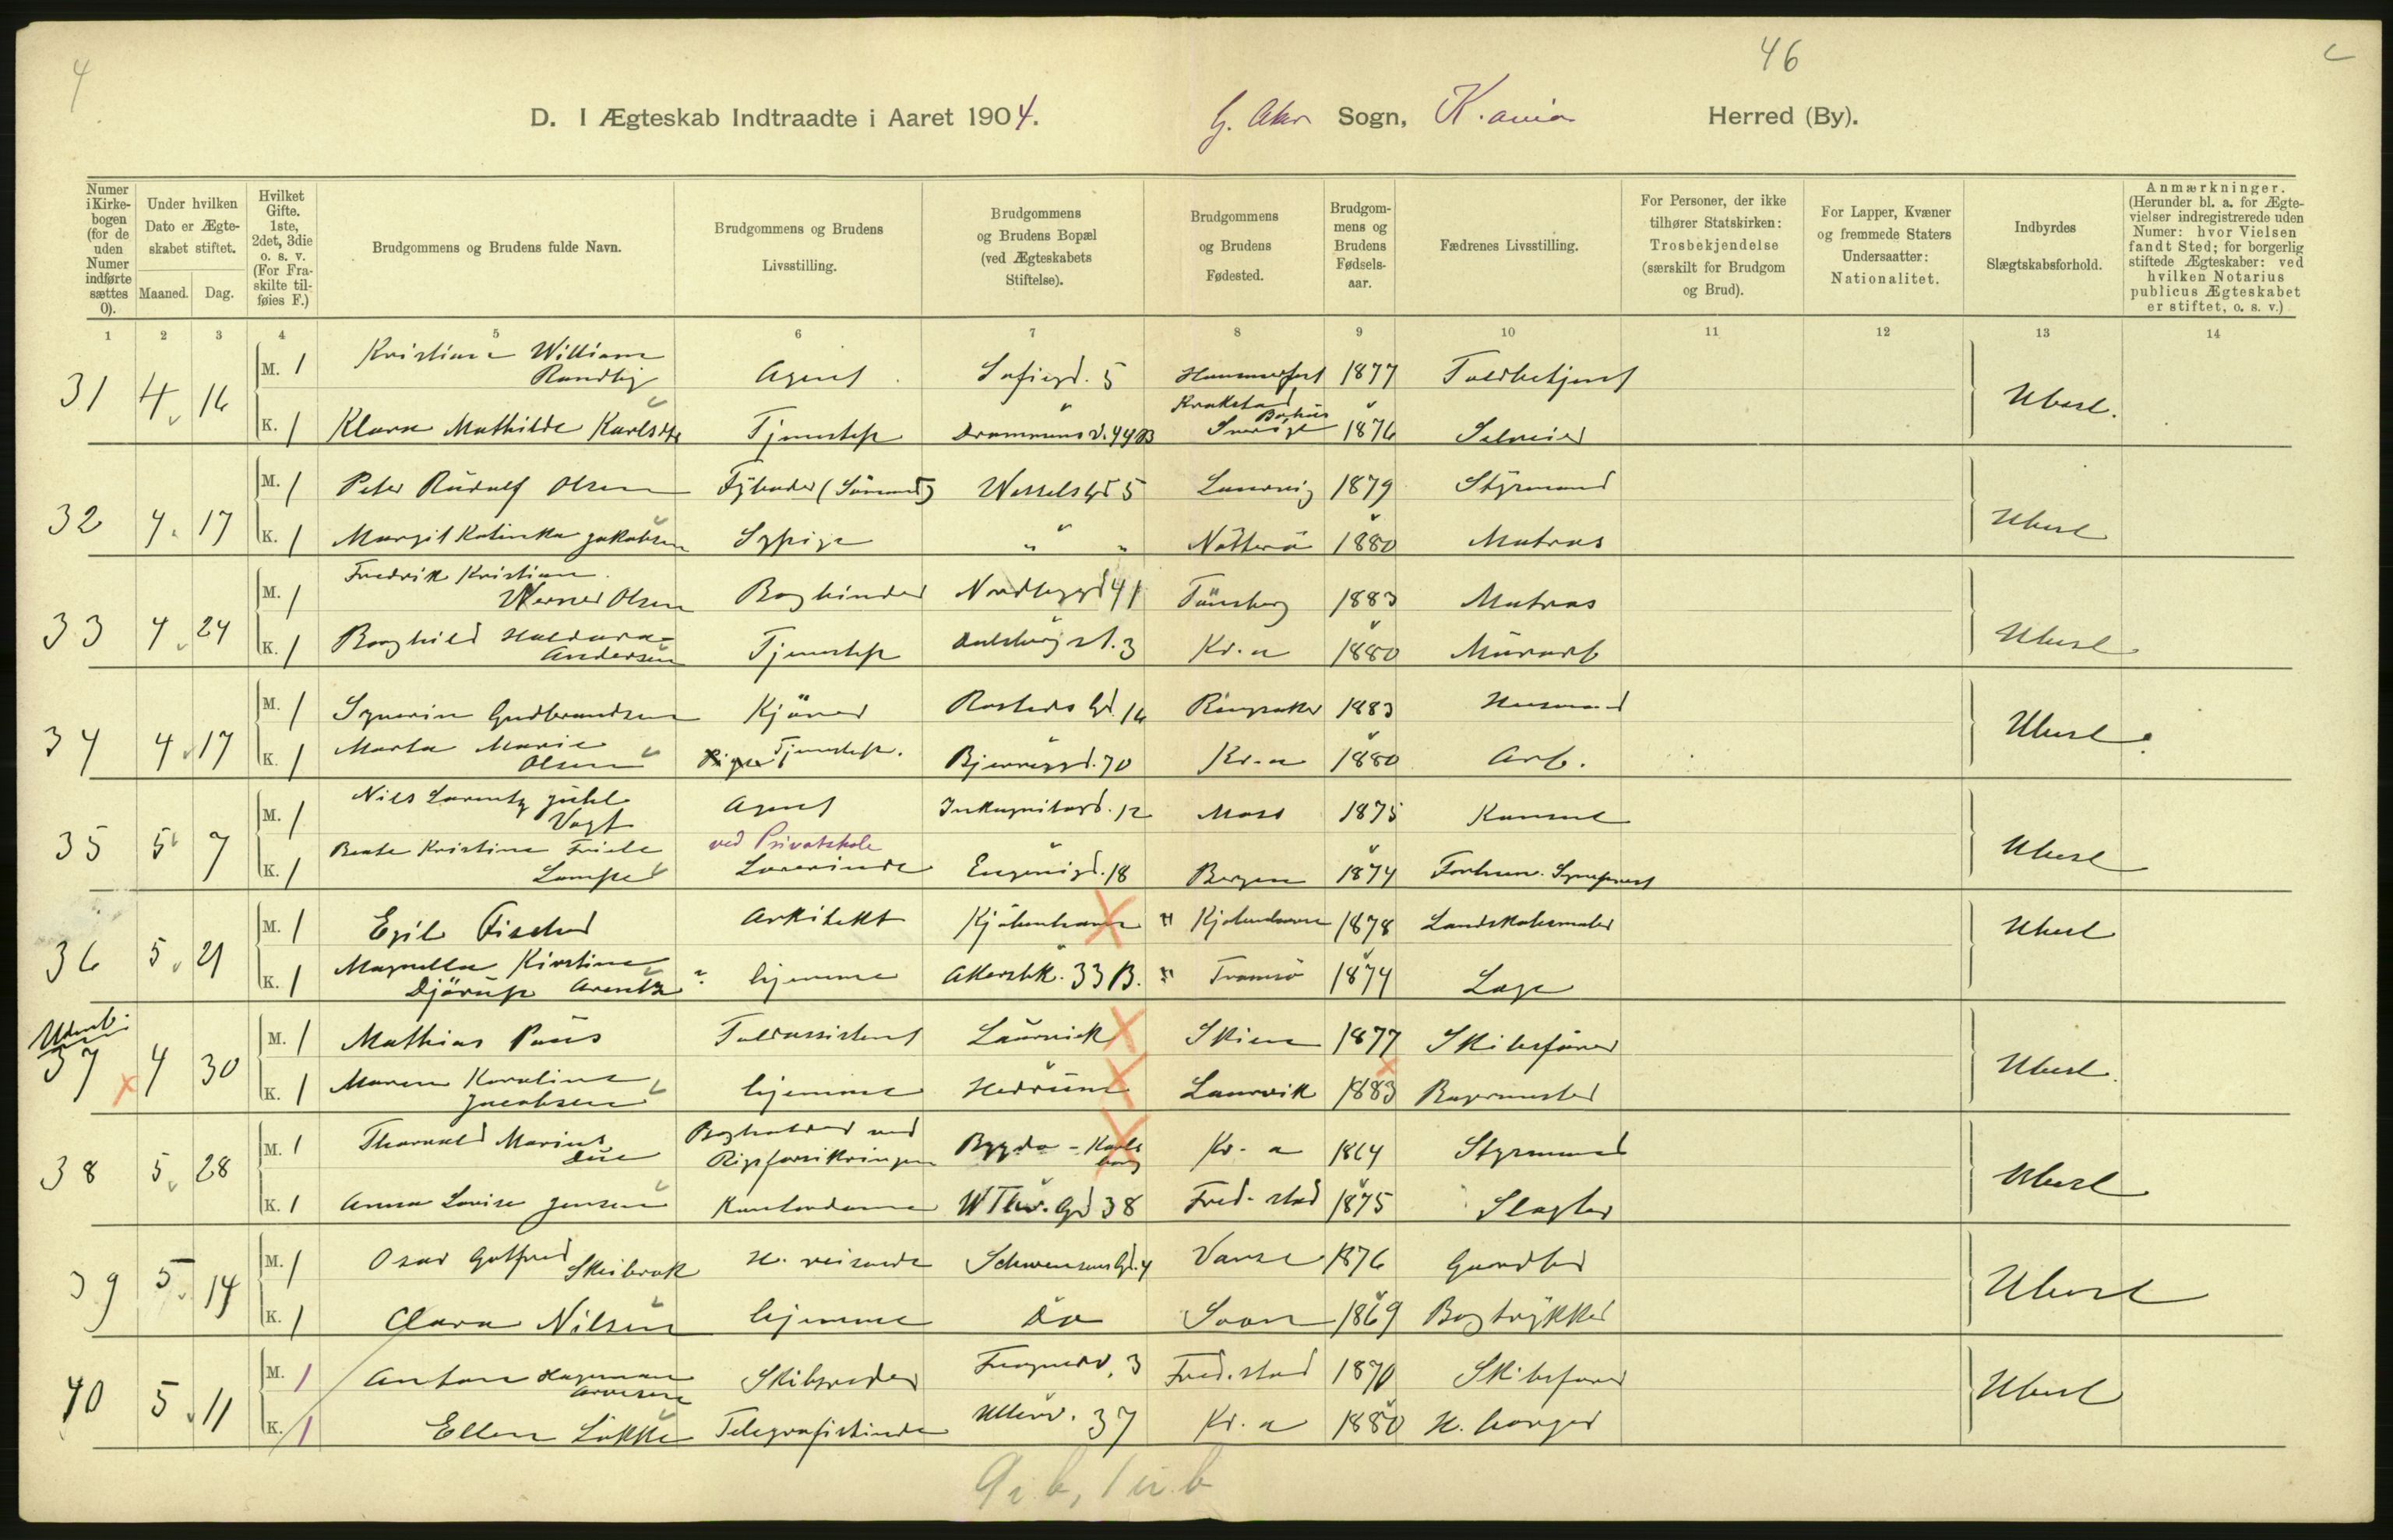 4
46
D. I Ægteskab Indtraadte i Aaret 1904. G. Aker Sogn, K.ania Herred (By).
Numer i Kirkebogen (for de uden Numer indførte sættes 0).
Under hvilken Dato er Ægteskabet stiftet.
Maaned. Dag.
Hvilket Gifte. 1ste, 2det, 3die o. s. v. (For Fraskilte tilføies F.)
Brudgommens og Brudens fulde Navn.
Brudgommens og Brudens Livsstilling.
Brudgommens og Brudens Bopæl (ved Ægteskabets Stiftelse).
Brudgommens og Brudens Fødested.
Brudgommens og Brudens Fødselsaar.
Fædrenes Livsstilling.
For Personer, der ikke tilhører Statskirken: Trosbekjendelse (særskilt for Brudgom og Brud).
For Lapper, Kvæner og fremmede Staters Undersaatter: Nationalitet.
Indbyrdes Slægtskabsforhold.
Anmærkninger. (Herunder bl. a. for Ægtevielser indregistrerede uden Numer: hvor Vielsen fandt Sted; for borgerlig stiftede Ægteskaber: ved hvilken Notarius publicus Ægteskabet er stiftet, o. s. v.)
1 2 3 4 5 6 7 8 9 10 11 12 13 14
31 4 16 M. 1 Kristian William Randby Agent Sofiegd. 5 Hammerfest 1877 Toldbetjent Ubesl.
K. 1 Klara Mathilde Karlsen Tjenestep Drammensv. 44B Krokstad Bohus Sverige 1876 Selveier
32 4 17 M. 1 Peter Rudolf Olsen Fyrbøder (Sømand) Wesselsgd 5 Laurvig 1879 Styrmand Ubesl
K. 1 Margit Katinka Jakobsen Sypige " " Nøtterø 1880 Matros
33 4 24 M. 1 Fredrik Kristian Werner Olsen Bogbinder Nordbygd 41 Tønsberg 1883 Matros Ubesl
K. 1 Borghild Haldora Andersen Tjenestep st. 3 Kr.a 1880 Murarb
34 4 17 M. 1 Severin Gudbrandsen Kjører Rosteds Gd. 16 Ringsaker 1883 Husmand Ubesl.
K. 1 Marta Marie Olsen Tjenestep. Bjerregd. 70 Kr.a 1880 Arb.
35 5 7 M. 1 Nils Lorentz Juhl Vogt Agent Inkognitogd. 12 Moss 1875 Konsul Ubesl
K. 1 Beate Kristine Friele Lampe ved Privatskole Lærerinde Eugenigd. 18 Bergen 1874 Forhenv. Sogneprest
36 5 21 M. 1 Egil Fischer Arkitekt Kjøbenhavn Kjøbenhavn 1878 Landskabsmaler Ubesl
K. 1 Magnella Kirstine Djørup Arentz ? hjemme Akersbk. 33 B. Tromsø 1874 Læge
Udenb.
37 4 30 M. 1 Mathias Paus Toldassistent Laurvick Skien 1877 Skibsfører Ubesl.
K. 1 Maren Karoline Jacobsen hjemme Hedrum Laurvik 1883 Bagermester
38 5 28 M. 1 Thorvald Marius Due Bogholder ved Rigsforsikringen Bygdø - Karls borg Kr.a 1864 Styrmand Ubesl
K. 1 Anna Lovise Jensen Kontordame W Thr. Gd 38 Fred.stad 1875 Slagter
39 5 14 M. 1 Oscar Gotfred Skeibrok H. reisende Schwensensgd. 4 Vanse 1876 Gaardbr Ubesl
K. 1 Clara Nilsen hjemme Do Soon 1869 Bogtrykker
40 5 11 M. 1 Anton Hageman Arvesen Skibsreder Frognerv. 3 Fred.stad 1870 Skibsfører Ubesl
K. 1 Ellen Løkke Telegrafistinde Ullev. 37 Kr.a 1880 H. borger
9 i. b, 1 u. b